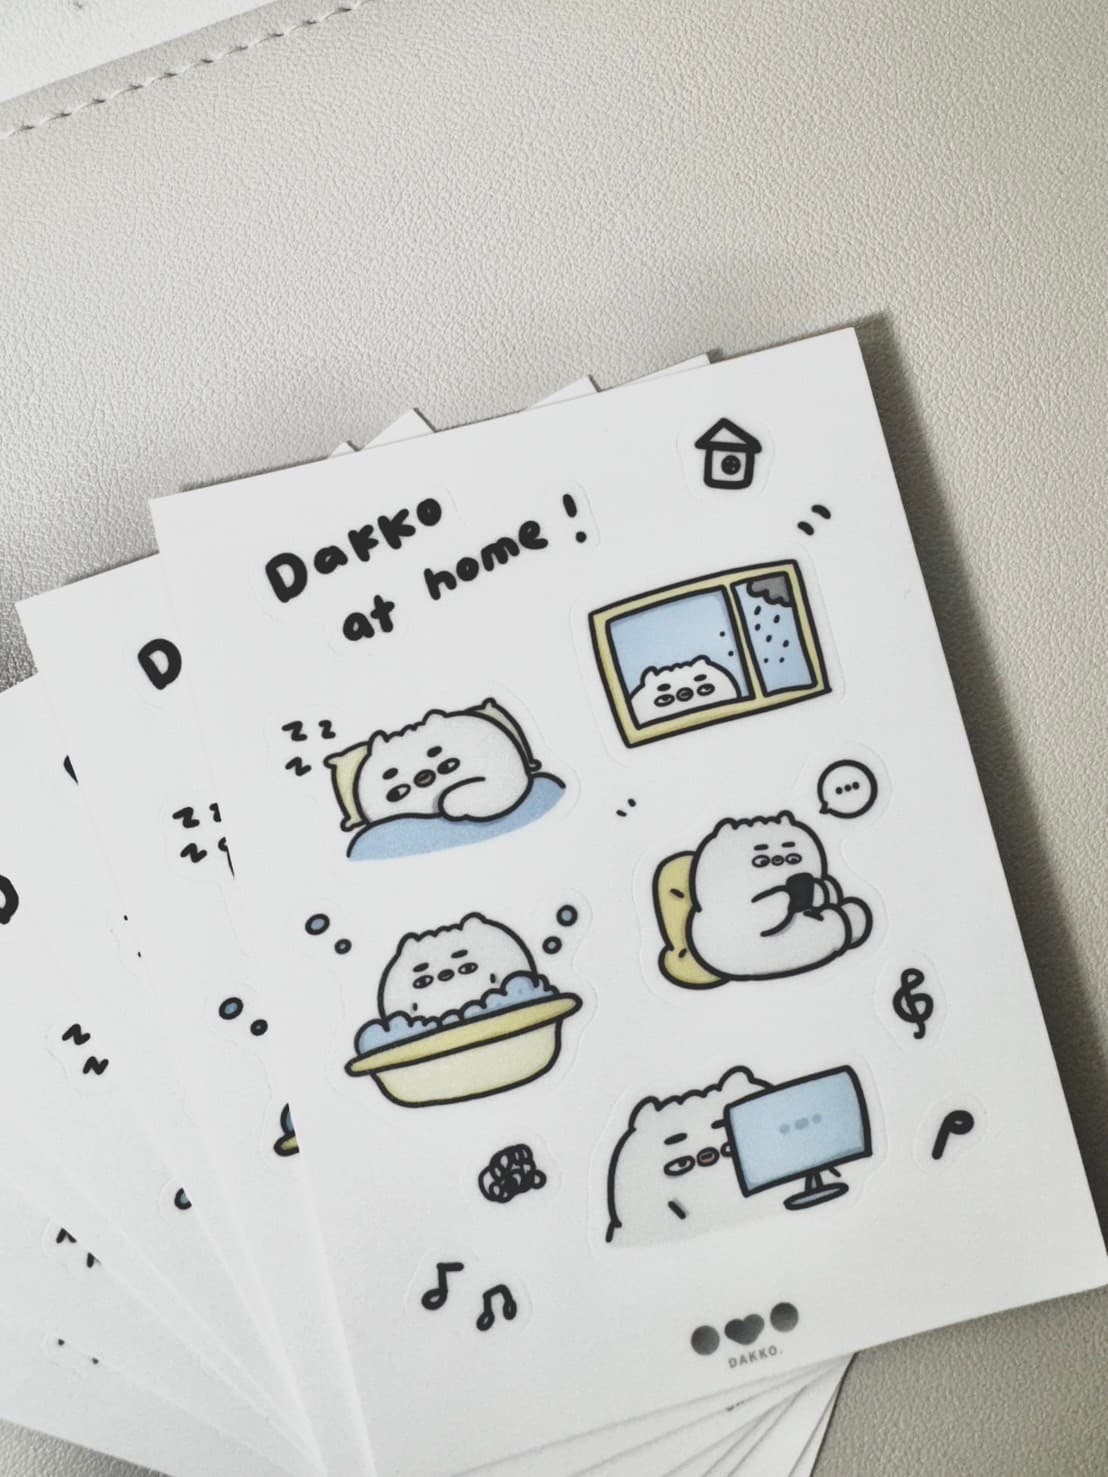 Dakko
at home!
z z
z
D
z z
z
z
z
DAKKO.